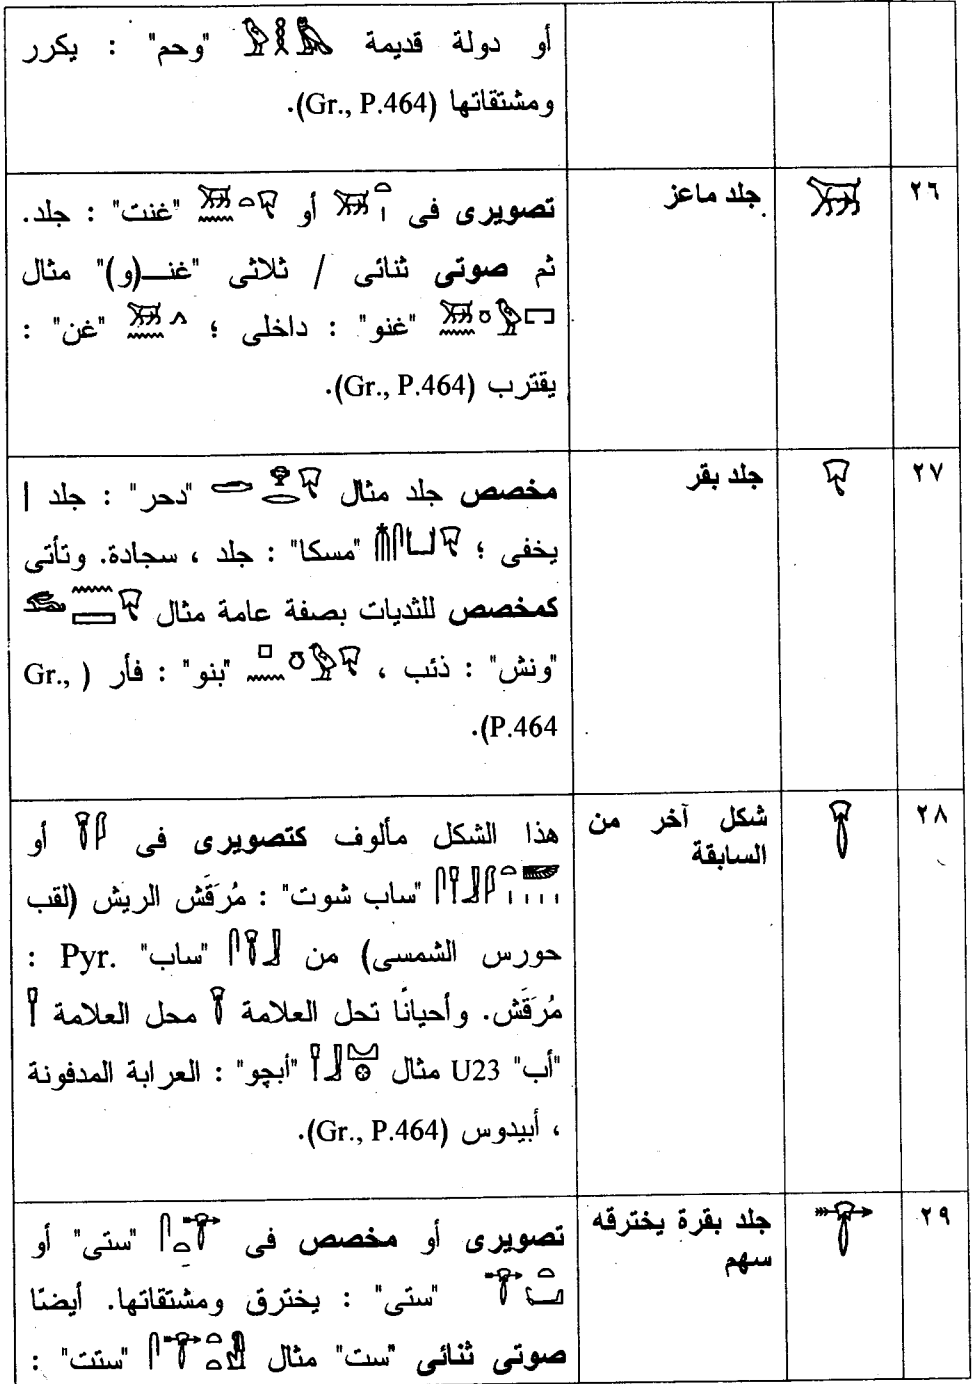 أو دولة قديمة "وحم" : يكرر
ومشتقاتها (Gr., P.464).
٢٦
جلد ماعز
تصويرى فى أو "غنت" : جلد.
ثم صوتى ثنائى / ثلاثى "غنـــ(و)" مثال
"غنو" : داخلى ؛ "غن" :
يقترب (Gr., P.464).
٢٧
جلد بقر
مخصص جلد مثال "دحر" : جلد |
يخفى ؛ "مسكا" : جلد ، سجادة. وتأتى
كمخصص للثديات بصفة عامة مثال
"ونش" : ذئب ، "بنو" : فأر ( Gr.,
P.464).
٢٨
شكل آخر من
السابقة
هذا الشكل مألوف كتصويرى فى أو
"ساب شوت" : مُرَقَش الريش (لقب
حورس الشمسى) من "ساب" Pyr. :
مُرَقَش. وأحيانًا تحل العلامة محل العلامة
"أب" U23 مثال "أبچو" : العرابة المدفونة
، أبيدوس (Gr., P.464).
٢٩
جلد بقرة يخترقه
سهم
تصويرى أو مخصص فى "ستى" أو
"ستى" : يخترق ومشتقاتها. أيضًا
صوتى ثنائى "ست" مثال "ستت" :